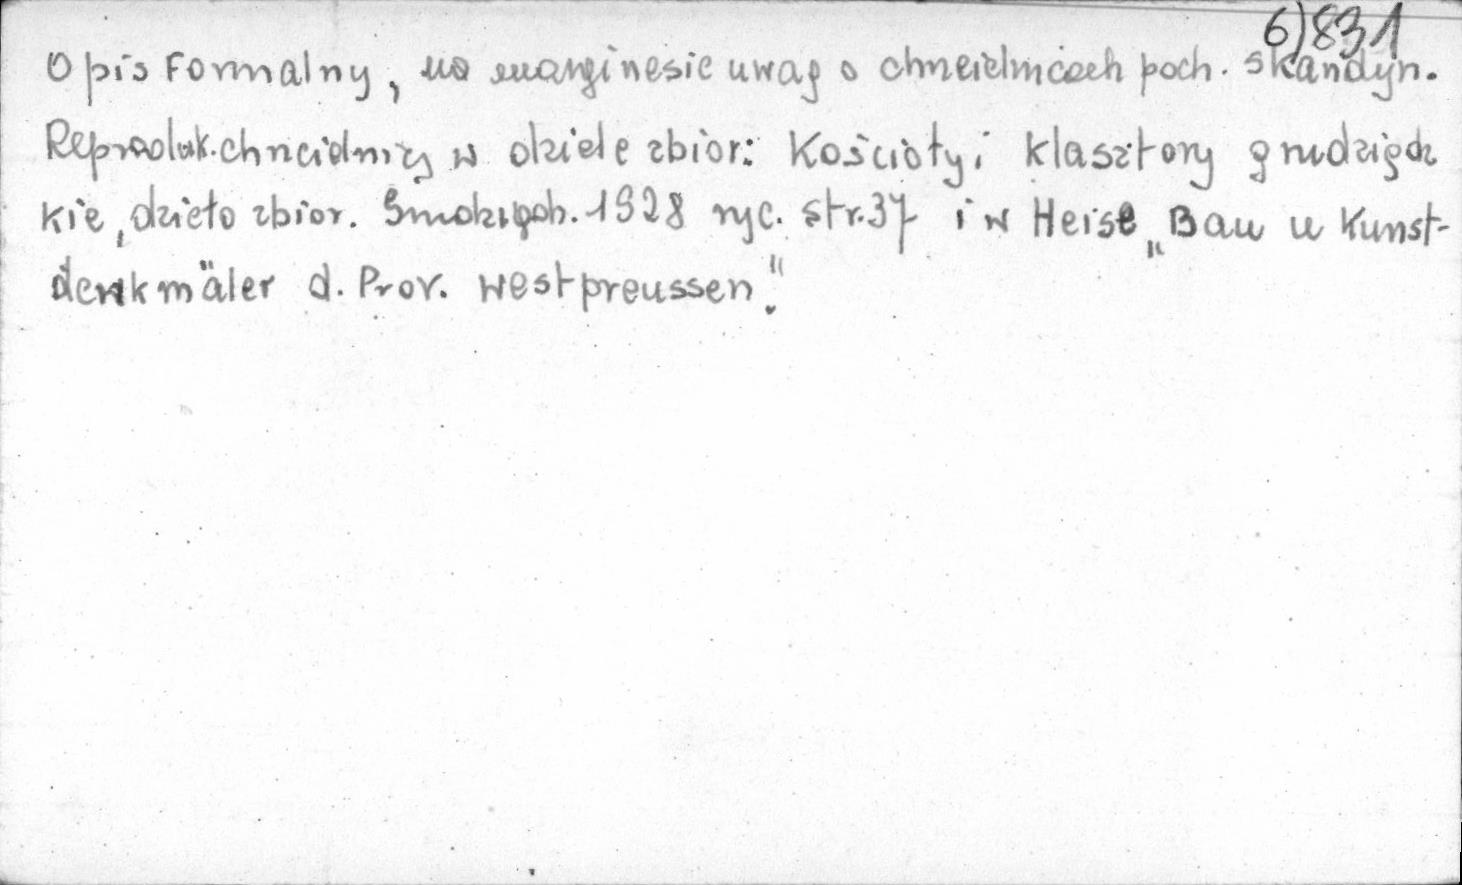 6)831
Opis formalny, na marginesie uwag o chrzcielnicach poch. skandyn.
Reproduk. chrzcielnicy w dziele zbior: Kościoły i klasztory grudziądz
kie, dzieło zbior. Grudziądz. 1928 ryc. str. 37 i w Heise „Bau u Kunst-
denkmäler d. Prov. Westpreussen".